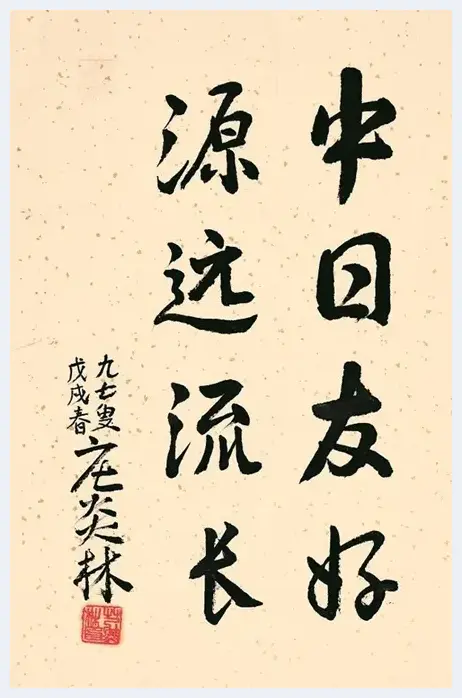 中日友好
源远流长
九七叟
戊戌春
庄炎林